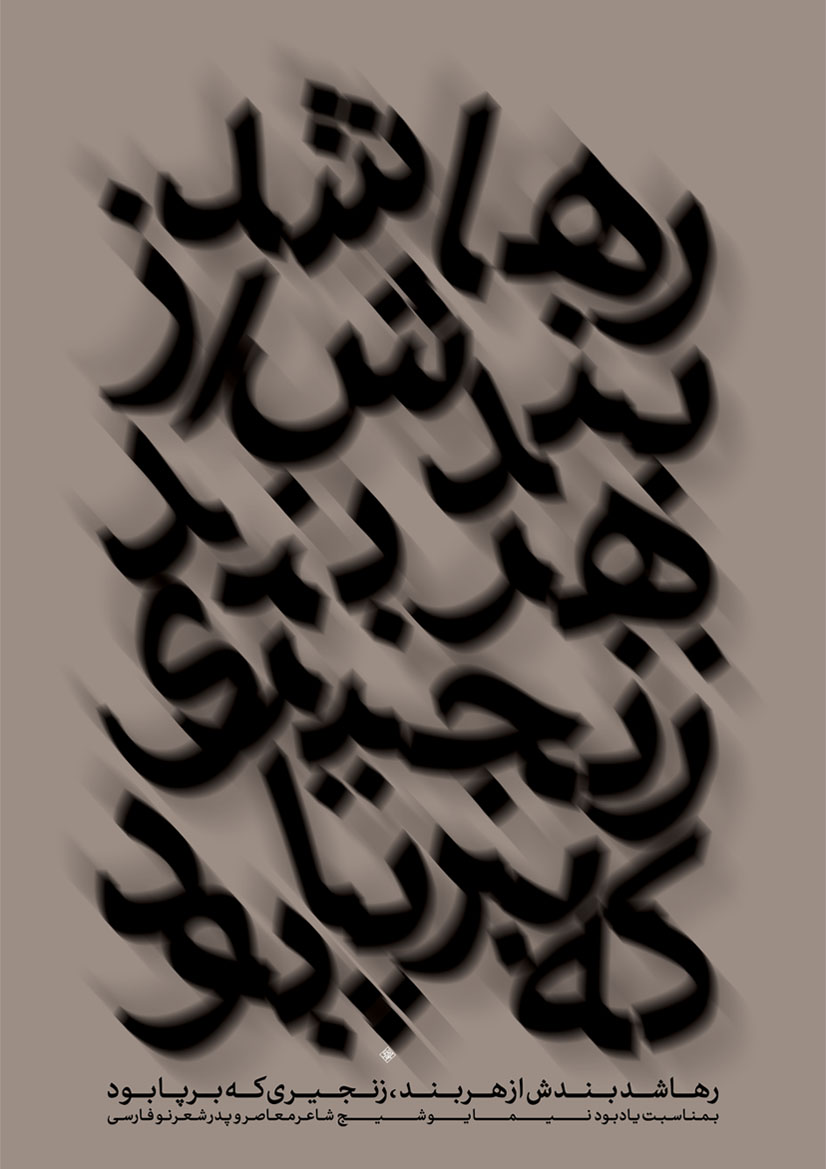 رها شد
بندش از
هر بند
زنجیری
که بر پا
بود
رها شد بندش از هر بند، زنجیری که بر پا بود
بمناسبت یادبود نیما یوشیج شاعر معاصر و پدر شعر نو فارسی